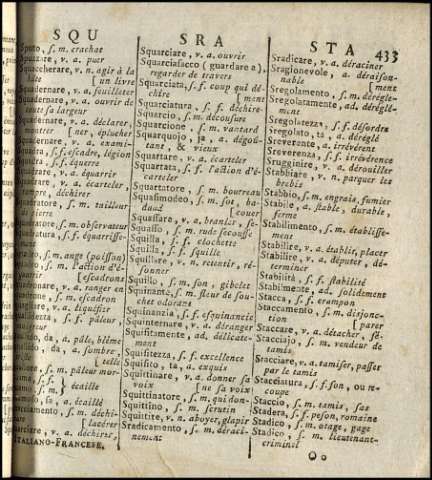 SQU
SRA
STA
433
Sputo, ſ. m. crachat
Squaccherare, v. n. agir à la
[ un livre
Squadernare, v. a. feuilleter
Squadernare, v. a. ouvrir de
tout ſa largeur
Squadernare, v. a. déclarer,
montrer [ ner, éplucher
Squadernare, v. a. exami-
Squadra, ſ. f. eſcadre, légion
ſ. f. équerre
v. a. équarrir
v. a. écarteler,
rompre, déchirer
Squadratore, ſ. m. tailleur
de pierre
ſ. m. obſervateur
ſ. f. équarriſſe-
ment
ſ. m. ange (poiſſon)
ſ. m. l'action d'é-
[ eſcadrons
v. a. ranger en
ſ. m. eſcadron
v. a. liquéfier
ſ. f. pâleur,
da, a. pâle, blême
da, a. ſombre,
ſ. m. pâleur mor-
} écaille
ſo, a. écaillé
ſ. m. déchi-
[ lacérer
v. a. déchirer,
ITALIANO-FRANCESE.
Squarciare, v. a. ouvrir
Squarciaſacco ( guardare a ),
regarder de travers
Squarciata, ſ. f. coup qui dé-
chire [ ment
Squarciatura, ſ. f. déchire-
Squarcio, ſ. m. découſure
Squarcione, ſ. m. vantard
Squarquojo, ja, a. dégoû-
tane, & vieux
Squartare, v. a. écarteler
Squartata, ſ. f. l'action d'é-
carteler
Squartatore, ſ. m. bourreau
Squaſimodeo, ſ. m. ſot, ba-
daud [ couer
Squaſſare, v. a. branler, ſe-
Squaſſo, ſ. m. rude ſecouſſe
Squilla, ſ. f. clochette
Squilla, ſ. f. ſquille
Squillare, v. n. retentir, ré-
ſonner
Squillo, ſ. m. ſon, gibelet
Squinante, ſ. m. fleur de ſou-
chet odorant
Squinanzia, ſ. f. eſquinancie
Squinternare, v. a. déranger
Squiſitamente, ad. délicate-
ment
Squiſitezza, ſ. f. excellence
Squiſito, ta, a. exquis
Squittinare, v. a. donner ſa
voix [ ne ſa voix
Squittinatore, ſ. m. qui don-
Squittino, ſ. m. ſcrutin
Squittire, v. n. aboyer, glapir
Sradicamento, ſ. m. déraci-
nement
Sradicare, v. a. déraciner
Sragionevole, a. déraiſon-
nable [ ment
Sregolamento, ſ. m. dérégle-
Sregolatamente, ad. déréglé-
ment
Sregolatezza, ſ. f. déſordre
Sregolato, ta, a. déréglé
Sreverente, a. irrévérent
Sreverenza, ſ. f. irrévérence
Srugginire, v. a. dérouiller
Stabbiare, v. n. parquer les
brebis
Stabbio, ſ. m. engrais, fumier
Stabile, a. ſtable, durable,
ferme
Stabilimento, ſ. m. établiſſe-
ment
Stabilire, v. a. établir, placer
Stabilire, v. a. députer, dé-
terminer
Stabilità, ſ. f. ſtabilité
Stabilmente, ad. ſolidement
Stacca, ſ. f. crampon
Staccamento, ſ. m. disjonc-
tion [ parer
Staccare, v. a. détacher, ſé-
Staccajo, ſ. m. vendeur de
tamis
Stacciare, v. a. tamiſer, paſſer
par le tamis
Stacciatura, ſ. f. ſon, ou re-
coupe
Staccio, ſ. m. tamis, ſas
Stadera, ſ. f. peſon, romaine
Stadico, ſ. m. otage, gage
Stadico, ſ. m. lieutenant-
criminel
O o